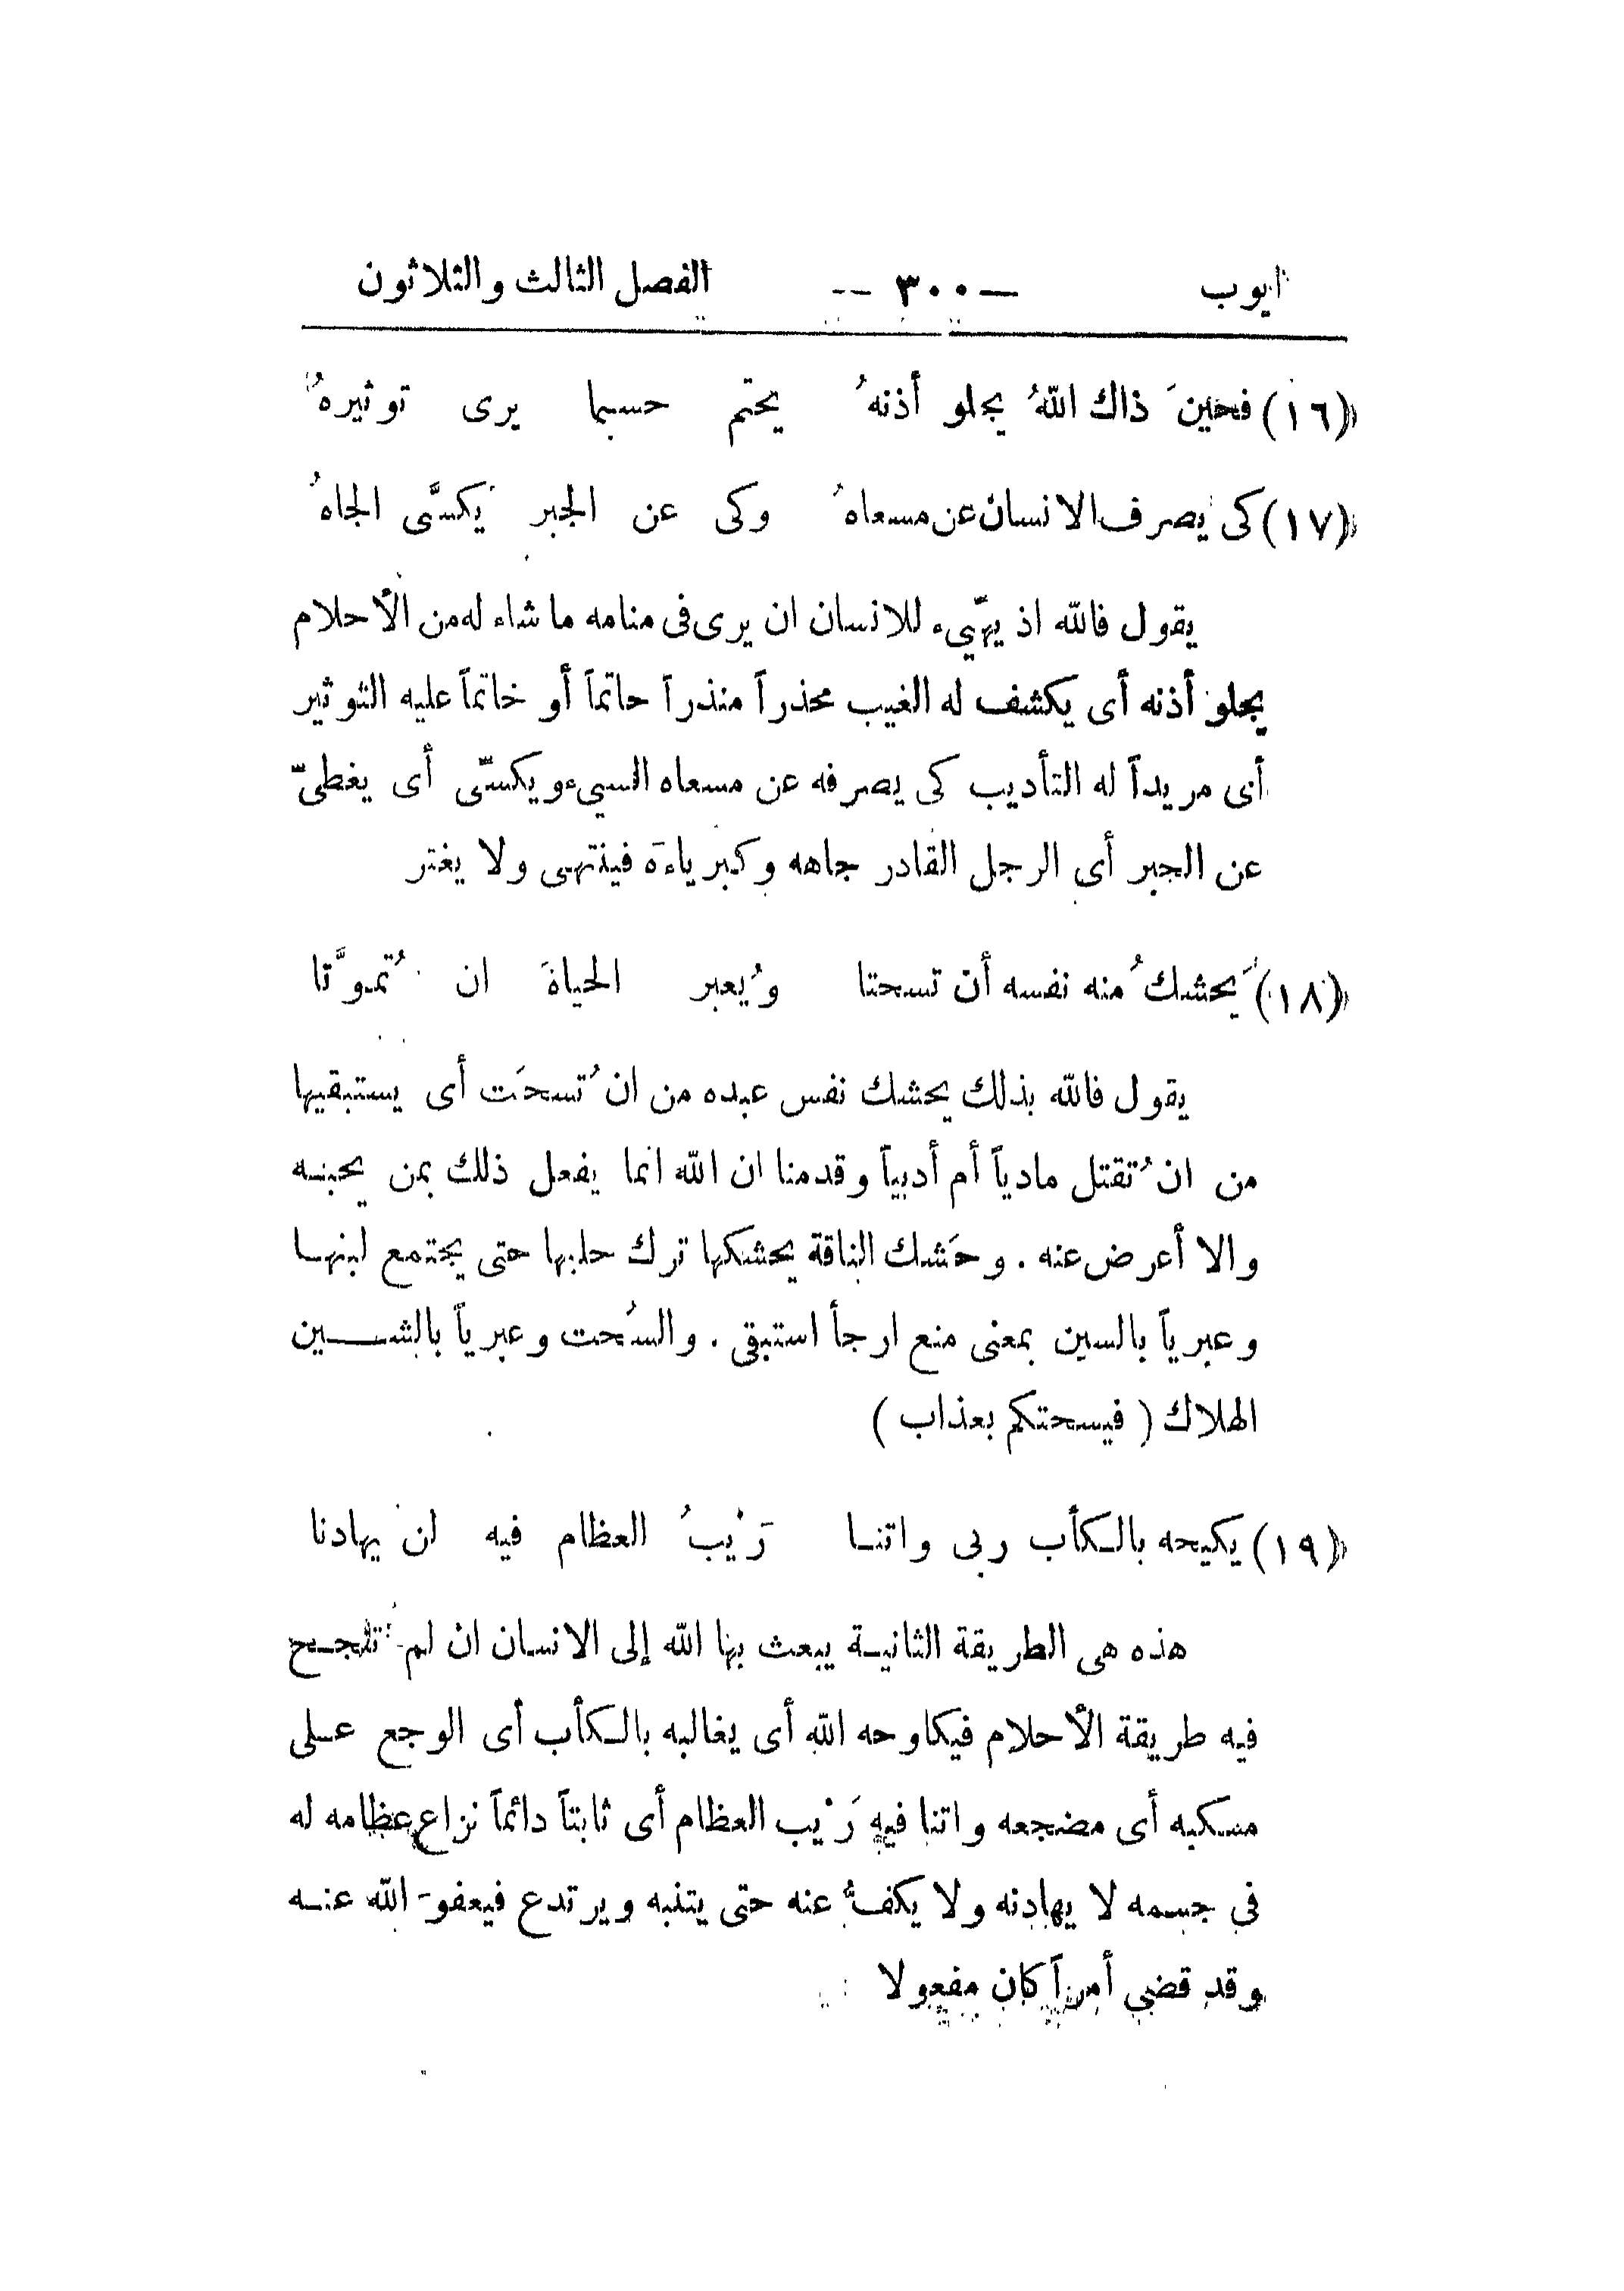 ايوب — ٣٠٠ -- الفصل الثالث والثلاثون
(١٦) فحينَ ذاك اللهُ يجلو أذنهُ يحتم حسبما يرى توثيرهُ
(١٧) كى يصرف الانسان عن مسعاهُ وكى عن الجبر يكسَّى الجاهُ
يقول فالله اذ يهّيء للانسان ان يرى فى منامه ما شاء له من الأحلام
يجلو أذنه أى يكشف له الغيب محذراً منذراً حاتماً أو خاتماً عليه التوثير
أى مريداً له التأديب كى يصرفه عن مسعاه السيء ويكسّى أى يغطىّ
عن الجبر أى الرجل القادر جاهه وكبرياءَه فينتهى ولا يغتر
(١٨) يَحشكُ منه نفسه أن تسحتا ويُعبر الحياةَ ان تُموَّتا
يقول فالله بذلك يحشك نفس عبده من ان تُسحَت أى يستبقيها
من ان تُقتل مادياً أم أدبياً وقدمنا ان الله انما يفعل ذلك بمن يحبـه
والا أعرض عنه . وحَشك الناقة يحشكها ترك حلبها حتى يجتمع لبنهـا
وعبرياً بالسين بمعنى منع ارجأ استبقى . والسُحت وعبرياً بالشــــين
الهلاك ( فيسحتكم بعذاب )
(١٩) يكيحه بالـكأب ربى واتنـا رَيْبُ العظام فيه لن يهادنا
هذه هى الطريقة الثانيـة يبعث بها الله إلى الانسان ان لم تُنجـح
فيه طريقة الأحلام فيكاوحه الله أى يغالبه بالـكأب أى الوجع عـلى
مسكبه أى مضجعه واتنا فيه رَيْب العظام أى ثابتاً دائماً نزاع عظامه له
فى جسمه لا يهادنه ولا يكفُّ عنه حتى يتنبه ويرتدع فيعفو الله عنـه
وقد قضى أمراً كان مفعولا